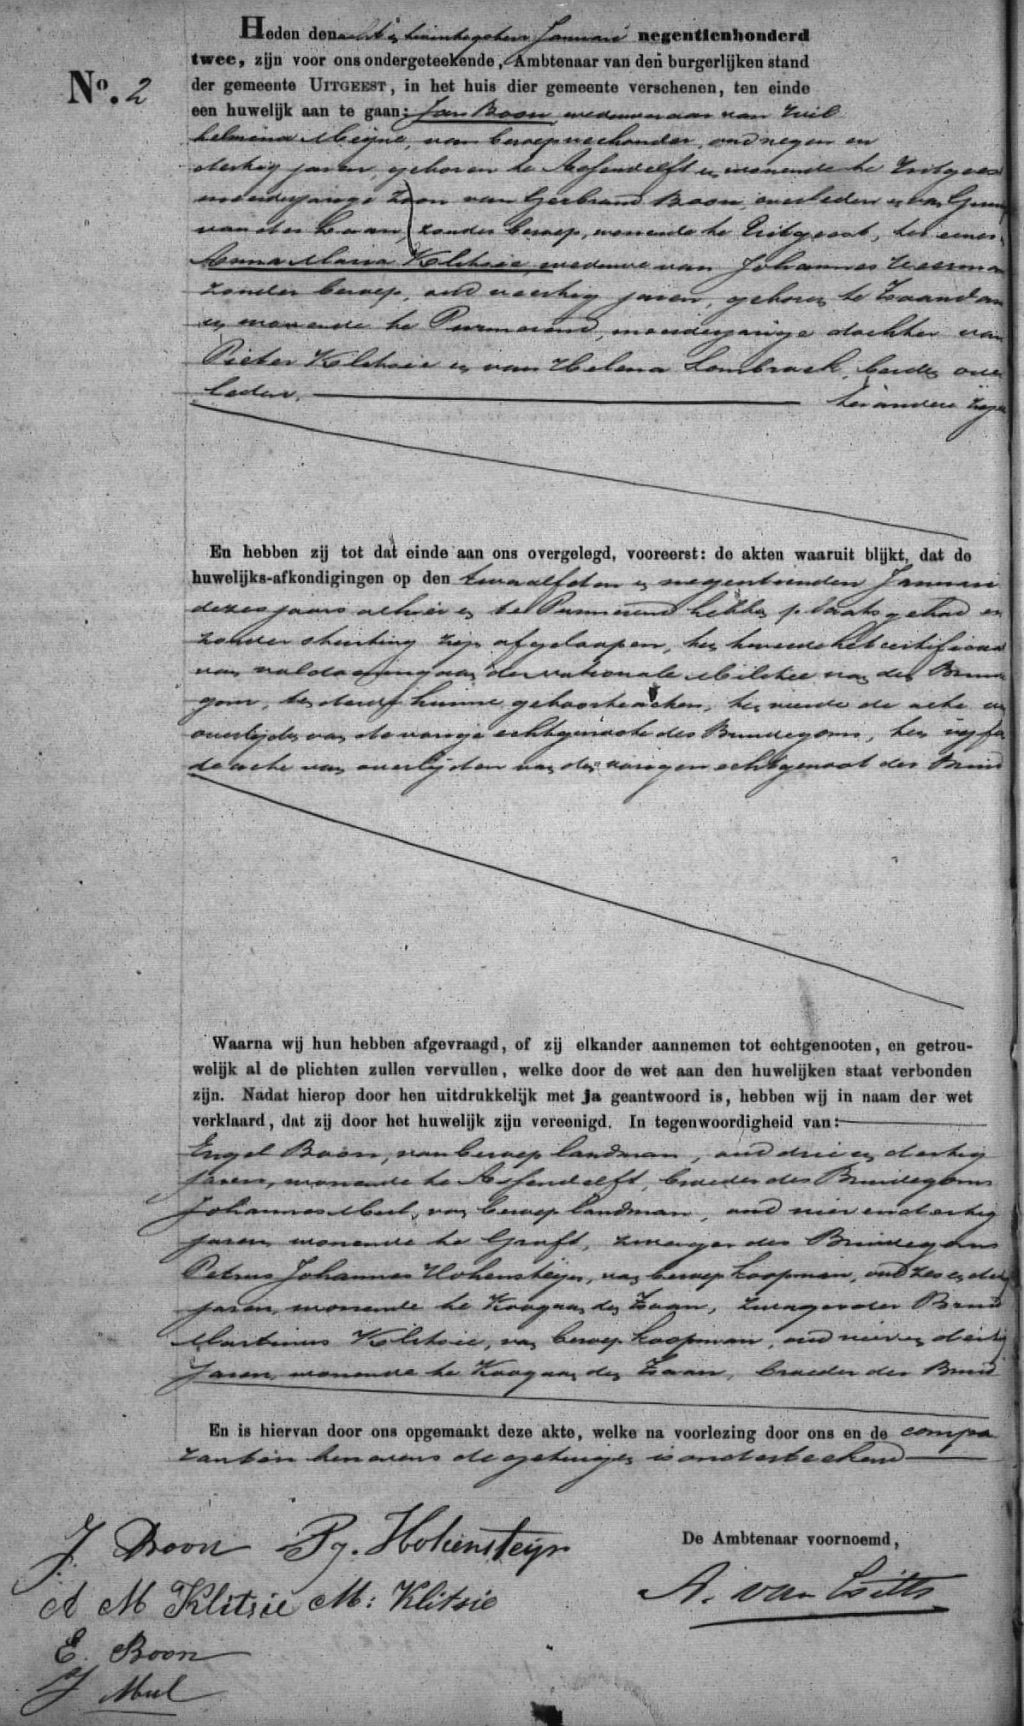 Heden den acht en twintigsten Januari negentienhonderd
twee, zijn voor ons ondergeteekende, Ambtenaar van den burgerlijken stand
No. 2
der gemeente UITGEEST, in het huis dier gemeente verschenen, ten einde
een huwelijk aan te gaan: Jan Boon, weduwnaar van Wil
helmina Meijne, van beroep veehouder, oud negen en
dertig jaren, geboren te Assendelft en wonende te Uitgeest
meerderjarige zoon van Gerbrand Boon, overleden en van
van der Laan, zonder beroep, wonende te Uitgeest, ter eener
Anna Maria Klitsie, weduwe van Johannes Veerman
zonder beroep, oud veertig jaren, geboren te Zaandam
en wonende te Purmerend, meerderjarige dochter van
Pieter Klitsie en van Helena Lombrock, beiden over
leden. ter andere zijde
En hebben zij tot dat einde aan ons overgelegd, vooreerst: de akten waaruit blijkt, dat de
huwelijks-afkondigingen op den twaalfden en negentienden Januari
dezes jaars alhier en te Purmerend hebben plaats gehad en
zonder stuiting zijn afgeloopen, ten tweede het certificaat
van voldoening aan de nationale Militie van den Bruide
gom, ten derde hunne geboorteakten, ten vierde de acte van
overlijden van de vorige echtgenoote des Bruidegoms, ten vijfde
de acte van overlijden van den vorigen echtgenoot der Bruid
Waarna wij hun hebben afgevraagd, of zij elkander aannemen tot echtgenooten, en getrou-
welijk al de plichten zullen vervullen, welke door de wet aan den huwelijken staat verbonden
zijn. Nadat hierop door hen uitdrukkelijk met ja geantwoord is, hebben wij in naam der wet
verklaard, dat zij door het huwelijk zijn vereenigd. In tegenwoordigheid van:
Engel Boon, van beroep landman, oud drie en dertig
jaren, wonende te Assendelft, broeder des Bruidegoms
Johannes Mul, van beroep landman, oud vier en dertig
jaren, wonende te Graft, zwager des Bruidegoms
Petrus Johannes Hohensteijn, van beroep koopman, oud zes en dertig
jaren, wonende te Koog aan de Zaan, zwager der Bruid
Martinus Klitsie, van beroep koopman, oud vier en dertig
jaren, wonende te Koog aan de Zaan, broeder der Bruid
En is hiervan door ons opgemaakt deze akte, welke na voorlezing door ons en de compa
ranten benevens de getuigen is onderteekend
J. Boon P. J. Hohensteijn
De Ambtenaar voornoemd,
A M Klitsie M: Klitsie
A. van
E. Boon
J Mul